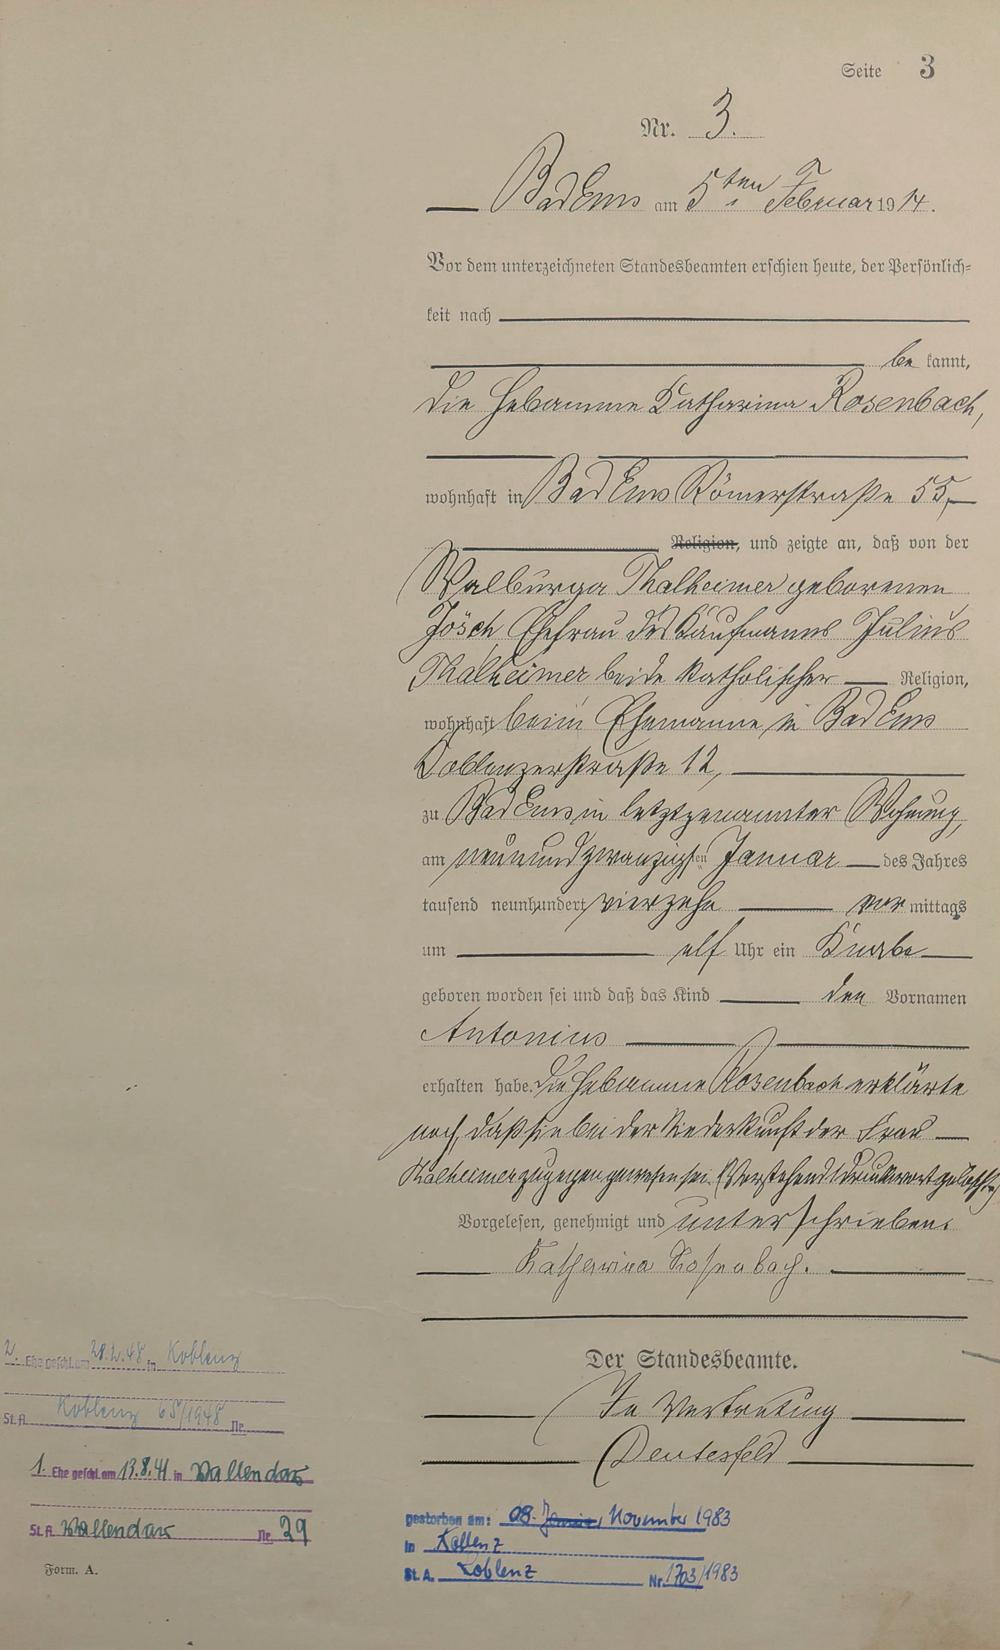 Seite 3
Nr. 3.
Bad Ems am 5ten Februar 1914.
Vor dem unterzeichneten Standesbeamten erschien heute, der Persönlich-
keit nach
be kannt,
die Hebamme Katharina Rosenbach,
wohnhaft in Bad Ems Römerstraße 55,
Religion, und zeigte an, daß von der
Walburga Thalheimer geborenen
Jösch Ehefrau des Kaufmanns Julius
Thalheimer beide katholischer Religion,
wohnhaft beim Ehemanne in Bad Ems
Coblenzerstraße 12,
zu Bad Ems in letztgenannter Wohnung,
am neunundzwanzigsten Januar des Jahres
tausend neunhundert vierzehn vor mittags
um elf Uhr ein Knabe
geboren worden sei und daß das Kind den Vornamen
Antonius
erhalten habe. Die Hebamme Rosenbach erklärte
noch, daß sie bei der Niederkunft der Frau
Thalheimer zugegen gewesen sei. (Vorstehend 1 Druckwort gelöscht)
Vorgelesen, genehmigt und unterschrieben.
Katharina Rosenbach.
Der Standesbeamte.
In Vertretung
2. Ehe geschl. am 28.2.48 in Koblenz
St.A. Koblenz 65/1948 Nr.
1. Ehe geschl. am 13.8.41 in Vallendar
St.A. Vallendar Nr. 29
Form. A.
gestorben am: 08. November 1983
in Koblenz
St.A. Koblenz Nr. 1703/1983